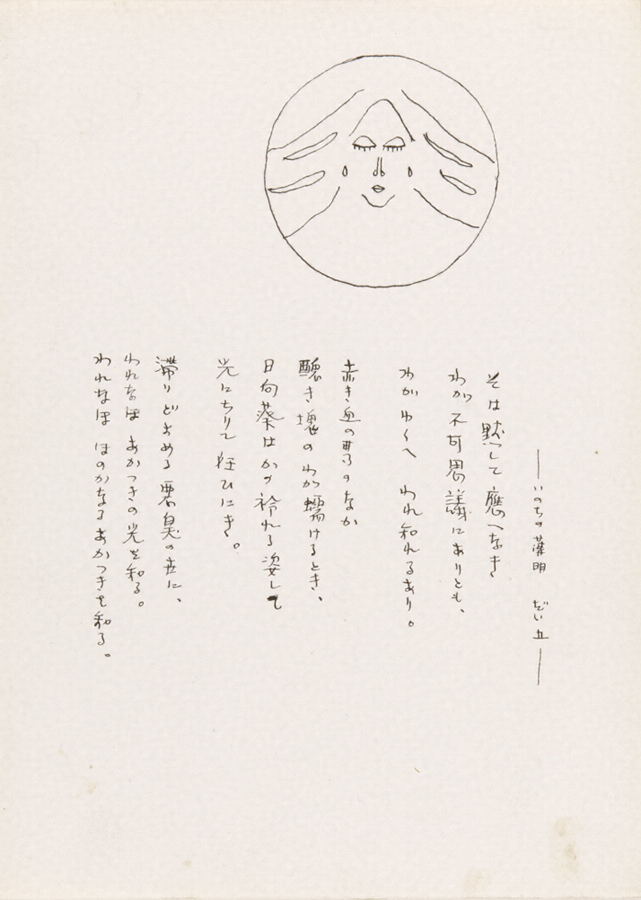 ――いのちの葉明 だい五――
そは黙して應へなき
わが不可思議にありとも、
わがゆくへ われ知れるあり。
赤き血の雫のなか
醜き塊のわが蠕けるとき、
日向葵はかゞ姿して
光にちりて狂ひにき。
滞りどよめる悪臭の並に、
われなほ あかつきの光を知る。
われなほ ほのかなるあかつきを知る。